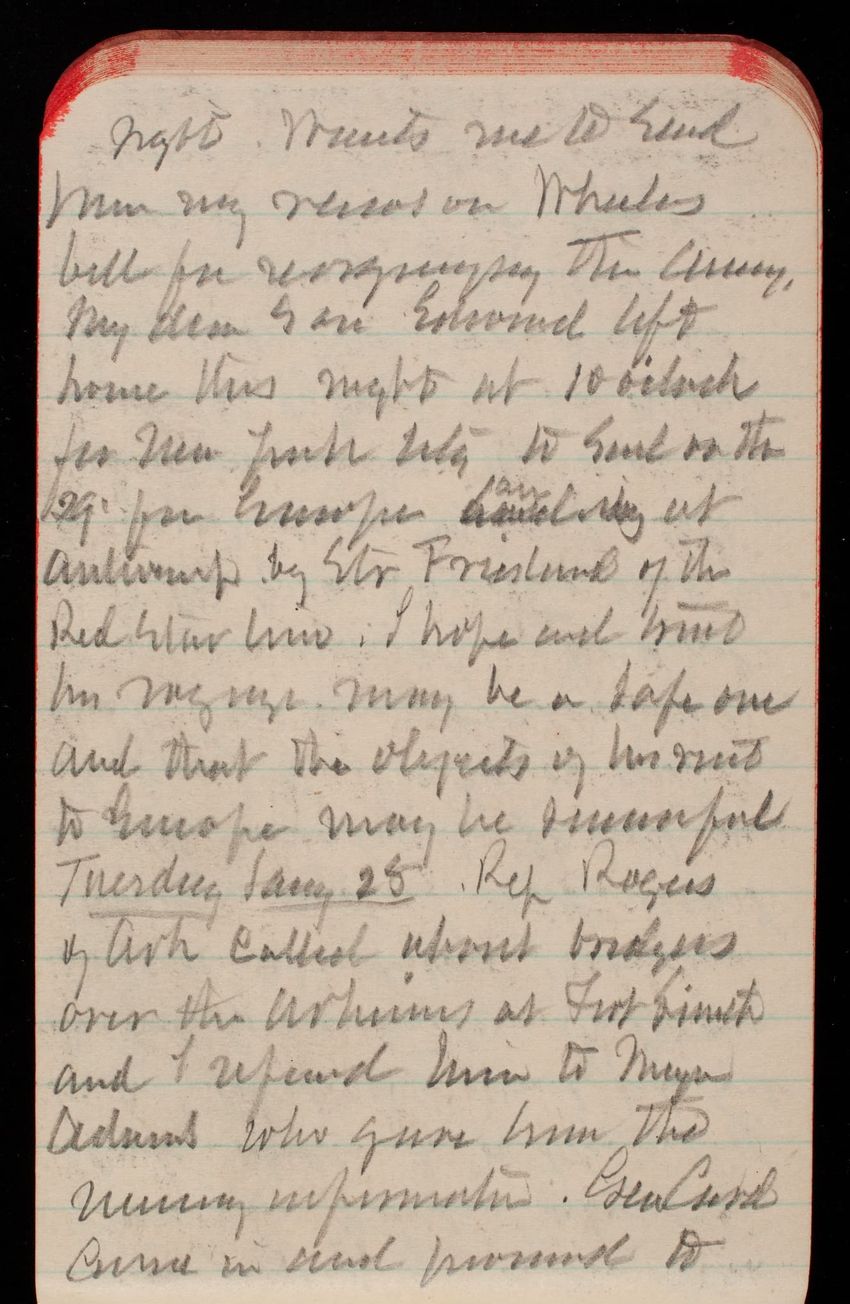 right. Wants me to send
him my views on Wheelers
bill for reorganizing the Army.
My dear Son Edward left
home this night at 10 oclock
for New York City to sail on the
29 for Europe at
Antwerp by Str Friesland of the
Red Star line. I hope and trust
his voyage may be a safe one
and that the objects of his visit
to Europe may be successful
Tuesday Jany 28 . Rep Rogers
of Ark called about bridges
over the Arkansas at Fort Smith
and I refered him to Major
Adams who gave him the
necessary information. Genl
Came in and promised to